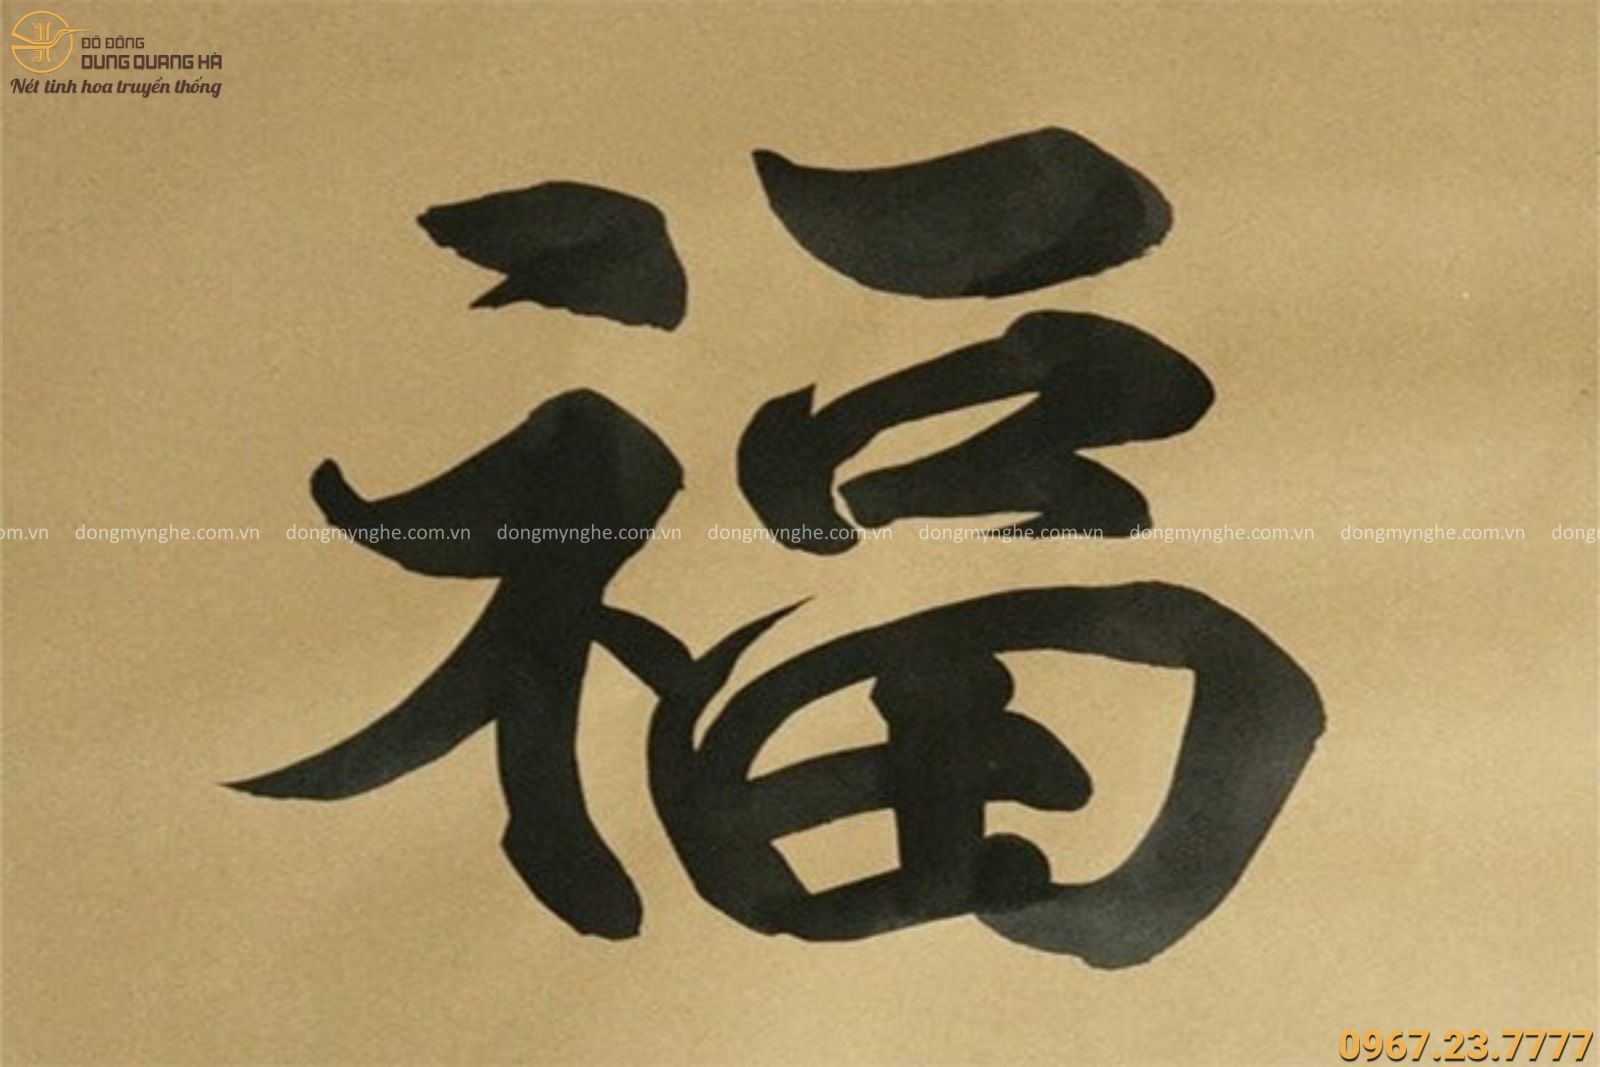 ĐỒ ĐỒNG
DUNG QUANG HÀ
Nét tinh hoa truyền thống
福
om.vn dongmynghe.com.vn dongmynghe.com.vn dongmynghe.com.vn dongmynghe.com.vn dongmynghe.com.vn dongmynghe.com.vn dongmynghe.com.vn dong
0967.23.7777